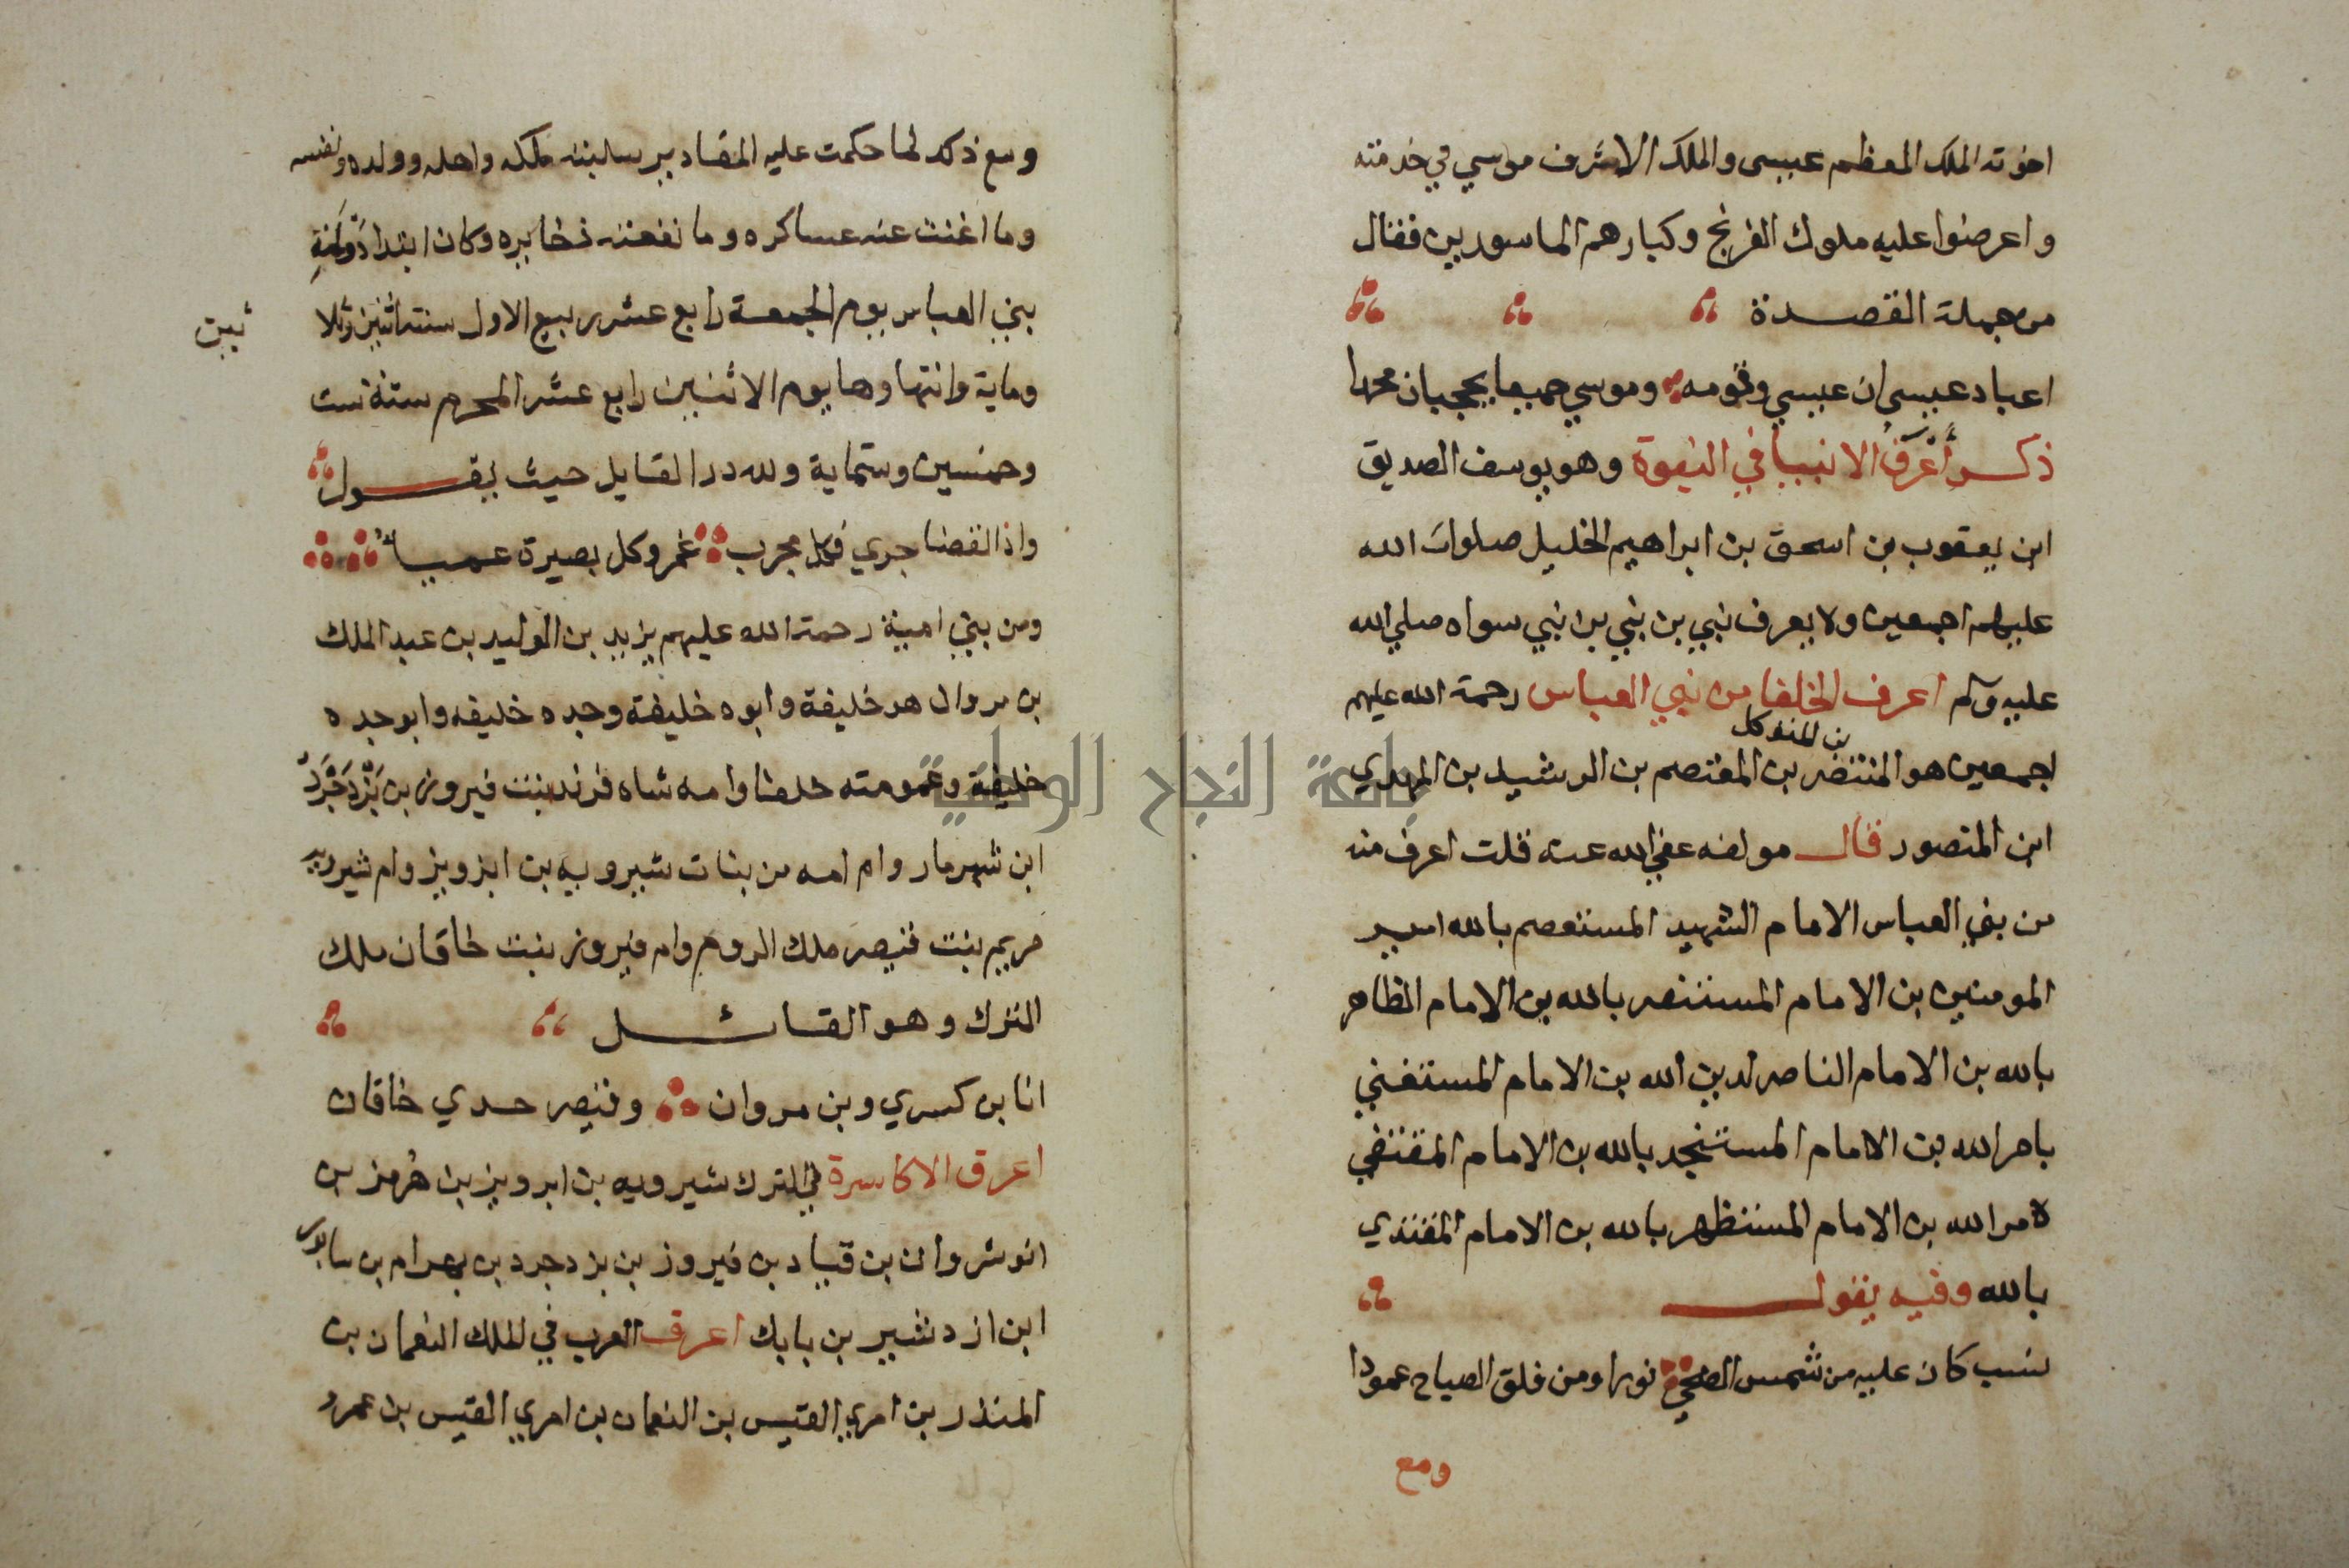 اخوته الملك المعظم عيسى والملك الاشرف موسي في خدمته
واعرضوا عليه ملوك الفرنج وكبارهم الماسورين فقال
من جملة القصدة
اعباد عيسى ان عيسي وقومه وموسي جميعا يححبان محمدا
ذكر أعْرَقُ الانبيا في النبوة وهو يوسف الصديق
ابن يعقوب بن اسحق بن ابراهيم الخليل صلوات الله
عليهم اجمعين ولا يعرف نبي بن نبي بن نبي سواه صلي الله
عليه وسلم اعرف الخلفا من نبي العباس رحمة الله عليهم
بن المتوكل
اجمعين هو المنتصر بن المعتصم بن الرشيد بن المهدي
ابن المنصور قال مولفه عفي الله عنه قلت اعرف منه
من بني العباس الامام الشهيد المستعصم بالله امير
المومنين بن الامام المستنصر بالله بن الامام الظاهر
بالله بن الامام الناصر لدين الله بن الامام المستضي
بامر الله بن الامام المستنجد بالله بن الامام المقتفي
لامر الله بن الامام المستظهر بالله بن الامام المقتدي
بالله وفيه يقول
نسب كان عليه من شمس الضحي نورا ومن فلق الصباح عمودا
ومع
ومع ذلك لما حكمت عليه المقادير سلبته ملكه واهله وولده ونفسه
وما اغنت عنه عساكره وما نفعته ذخايره وكان ابتدا دولة
بني العباس يوم الجمعة رابع عشر ربيع الاول سنة اثنين وثلا
ثين
وماية وانتهاوها يوم الاثنين رابع عشر المحرم سنة ست
وخمسين وستماية ولله در القايل حيث يقول
واذا القضا جري فكل مجرب غمر وكل بصيرة عميا
ومن بني امية رحمة الله عليهم يزيد بن الوليد بن عبد الملك
بن مروان هو خليفة وابوه خليفة وجده خليفه وابو جده
خليفة وعمومته خلفا وامه شاه فرند بنت فيروز بن يَزْدَجَرْدَ
ابن شهرمار وام امه من بنات شيرويه بن ابزويز وام شيرويه
مريم بنت قيصر ملك الروم وام فيروز بنت خاقان ملك
الترك وهو القائل
انا بن كسري وبن مروان وقيصر جدي خاقان
اعرق الاكاسرة في الترك شيرويه بن ابرويز بن هُرمز بن
انوشروان بن قباد بن فيروز بن يزدجرد بن بهرام بن سابور
ابن ازدشير بن بابك اعرق العرب في الملك النعمان بن
المنذر بن امري القيس بن النعمان بن امري القيس بن عمرو
جامعة النجاح الوطنية